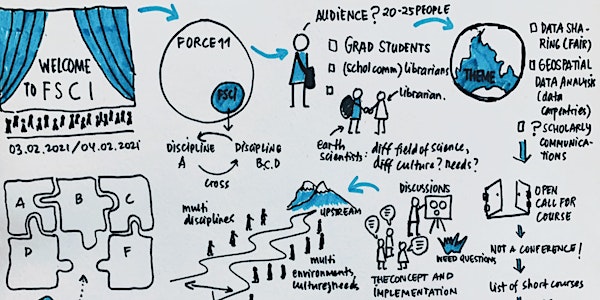 WELCOME
TO FSCI
03.02.2021/04.02.2021
FORCE11
FSCI
DISCIPLINE
A
DISCIPLINE
B,C,D
CROSS
AUDIENCE? 20-25 PEOPLE
GRAD STUDENTS
(scholcomm) librarians
librarian.
earth
scientists:
diff field of science,
diff culture? needs?
THEME
DATA SHA-
RING (FAIR)
GEOSPATIAL
DATA ANALYSIS
(data
carpentries)
? SCHOLARLY
COMMUNICA-
TIONS
OPEN
CALL FOR
COURSE
NOT A CONFERENCE!
List of short courses
A
B
C
D
F
multi
disciplines
UPSTREAM
multi
environments,
cultures, needs
DISCUSSIONS
NEED QUESTIONS
THE CONCEPT AND
IMPLEMENTATION